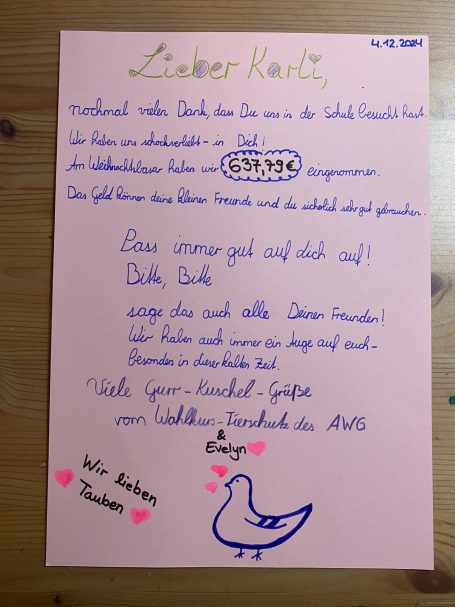 4.12.2024
Lieber Karli,
nochmal vielen Dank, dass Du uns in der Schule besucht hast.
Wir haben uns schockverliebt - in Dich!
Am Weihnachtsbasar haben wir 637,79€ eingenommen.
Das Geld können deine kleinen Freunde und du sicherlich sehr gut gebrauchen.
Pass immer gut auf dich auf!
Bitte, Bitte
sage das auch alle Deinen Freunden!
Wir haben auch immer ein Auge auf euch -
besonders in dieser kalten Zeit.
Viele Gurr - Kuschel - Grüße
vom Wahlkurs - Tierschutz des AWG
& Evelyn
Wir lieben
Tauben